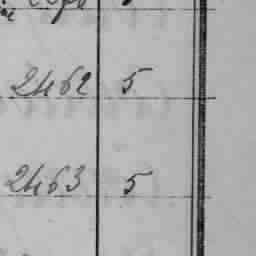 2462 5
2463 5